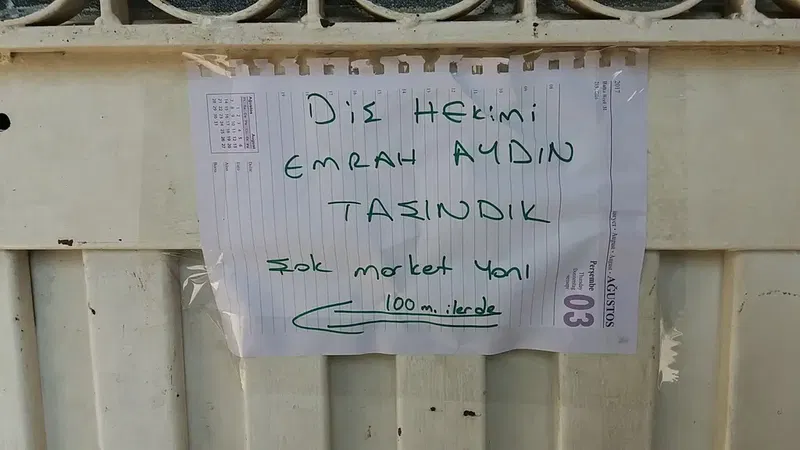 DİŞ HEKİMİ
EMRAH AYDIN
TAŞINDIK
Şok market yanı
100 m. ilerde
2017
AĞUSTOS
Perşembe
Thursday
03